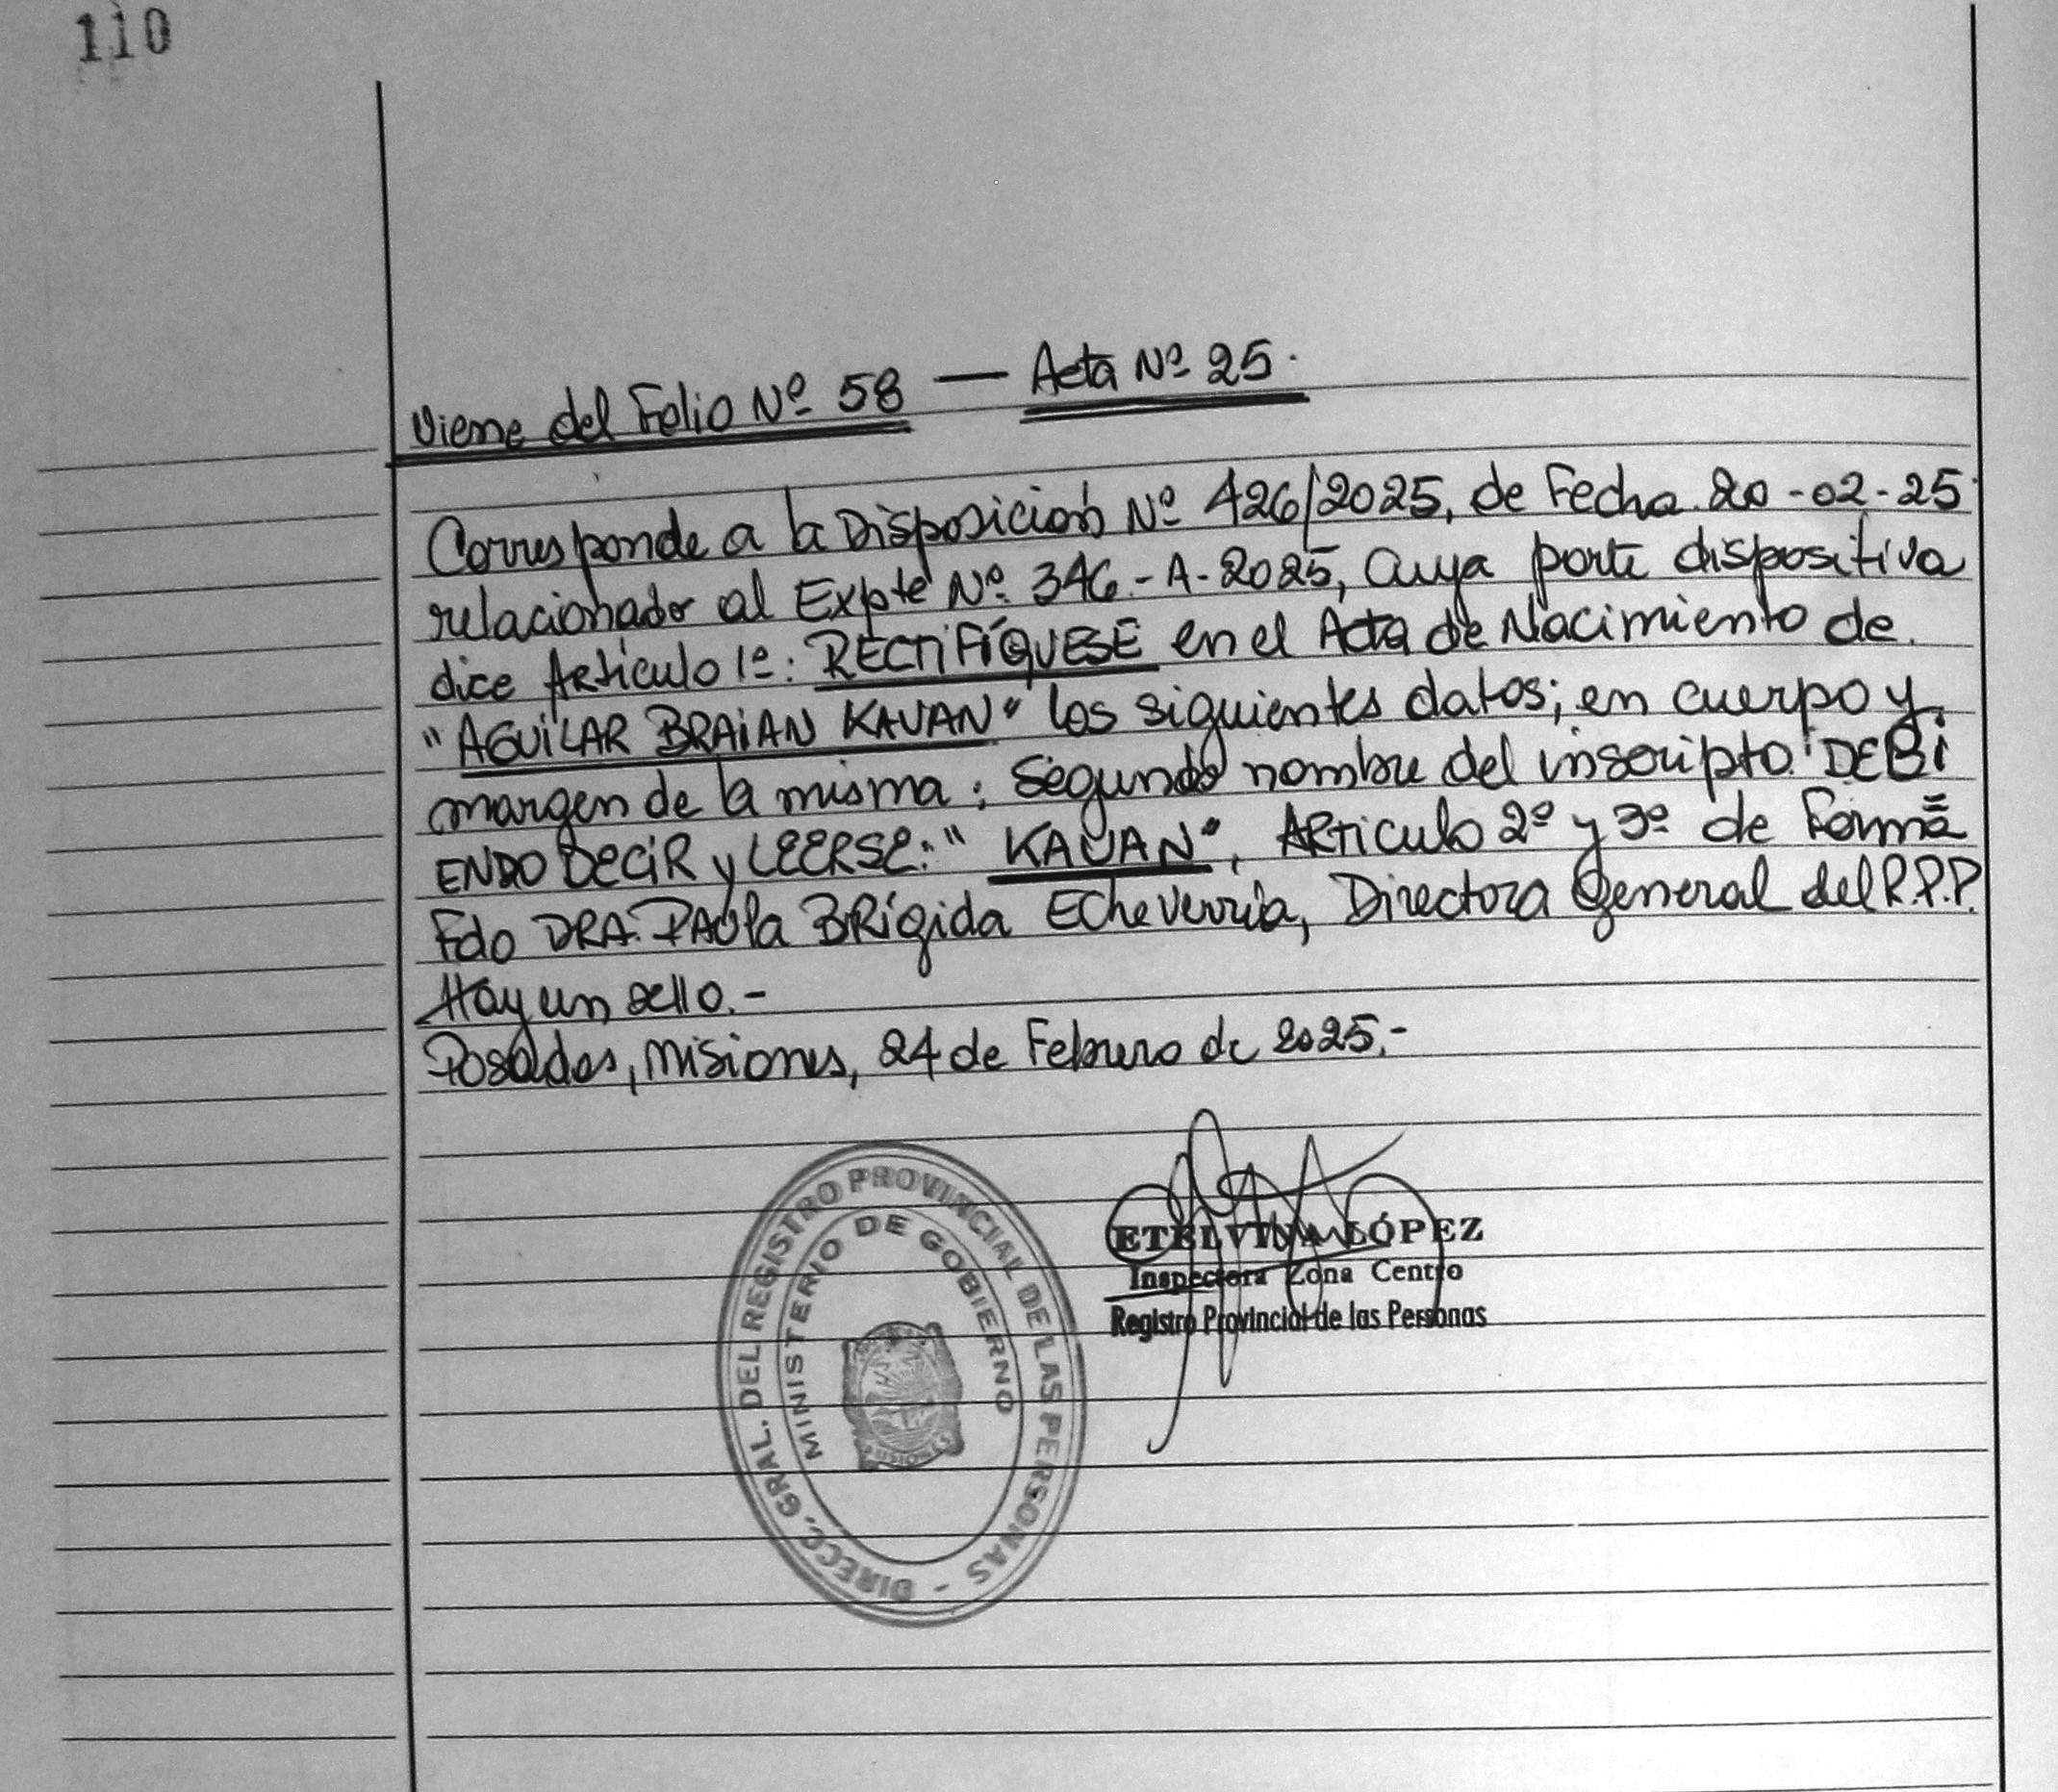 110
Viene del Folio Nº 58 — Acta Nº 25.
Corresponde a la Disposición Nº 426/2025, de Fecha 20-02-25
relacionado al Expte Nº 346-A-2025, cuya parte dispositiva
dice Artículo 1º: RECTIFÍQUESE en el Acta de Nacimiento de
"AGUILAR BRAIAN KAUAN" los siguientes datos; en cuerpo y
margen de la misma: Segundo nombre del inscripto "DEBI
ENDO DECIR y LEERSE:" "KAUAN", ARTICULO 2º y 3º de Forma=
Fdo DRA. PAOLA BRÍGIDA Echeverría, Directora General del R.P.P.
Hay un sello.-
Posadas, Misiones, 24 de Febrero de 2025.-
DIRECC. GRAL. DEL REGISTRO PROVINCIAL DE LAS PERSONAS -
MINISTERIO DE GOBIERNO
MISIONES
ETELVINA LÓPEZ
Inspectora Zona Centro
Registro Provincial de las Personas